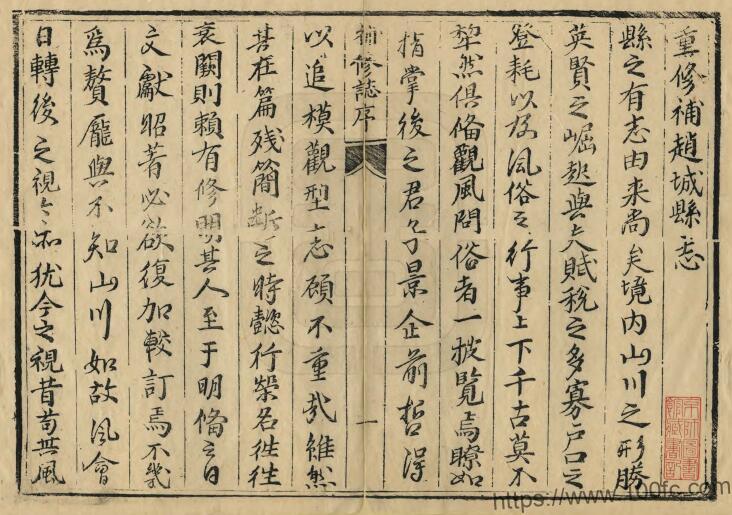 重修補趙城縣志
縣之有志由来尚矣境内山川之形勝
英賢之崛起與夫賦税之多寡户口之
登耗以及風俗之行事上下千古莫不
犂然俱備觀風問俗者一披覧焉瞭如
指掌後之君子景企前哲得
補修誌序
一
以追模觀型之志顧不重哉雖然
其在篇残簡断之時懿行榮名往往
衰闕則賴有修明其人至于明備之日
文獻昭著必欲復加較訂焉不幾
為贅龐與不知山川如故風會
日轉後之視今亦犹今之視昔苟其風
https://www.100fc.com